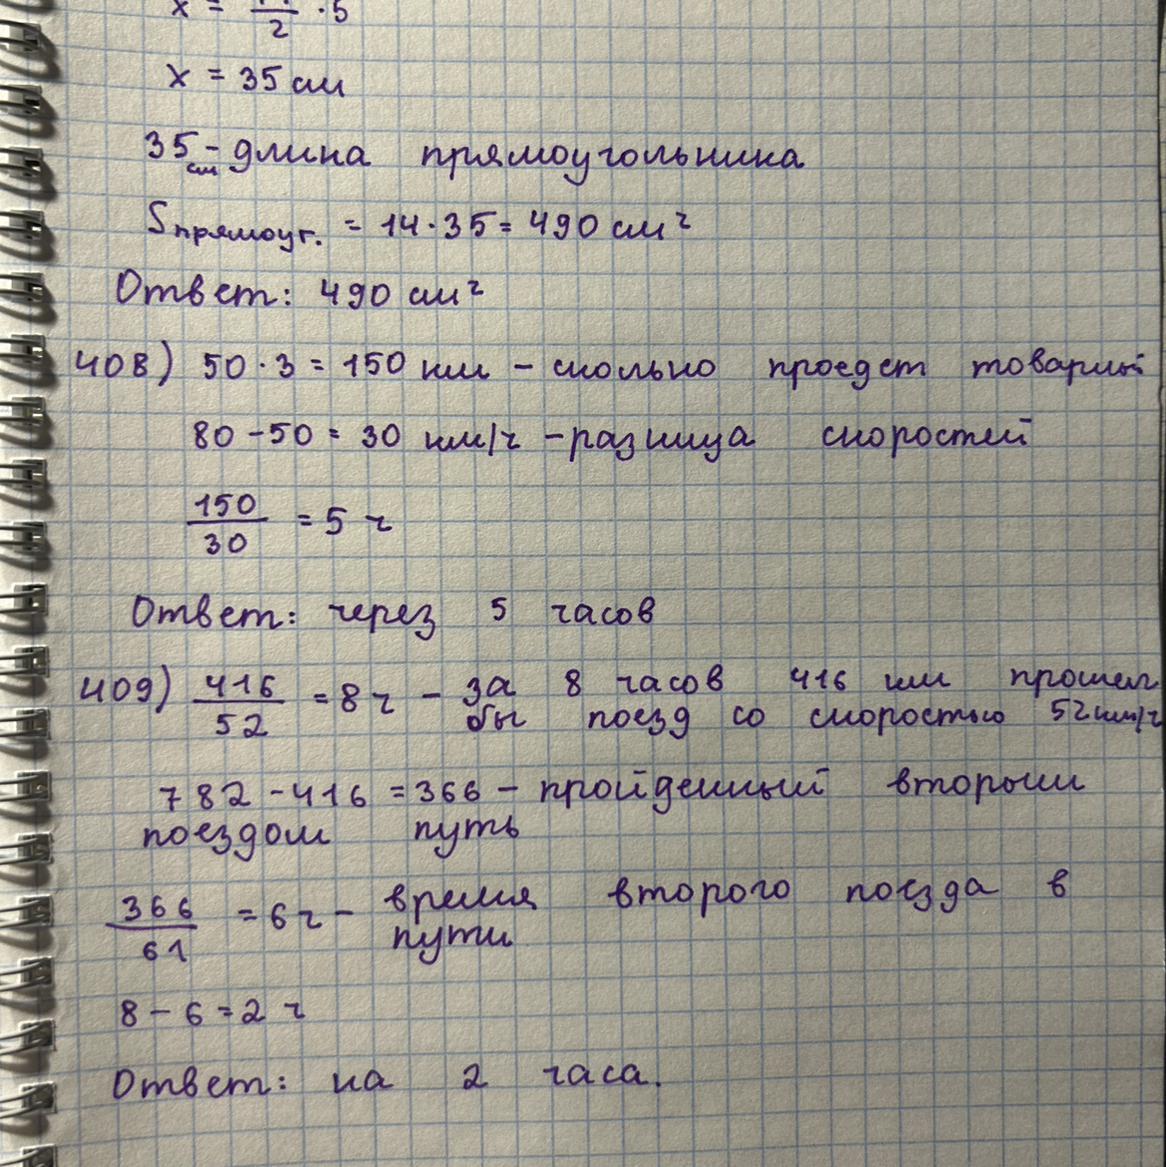 x = /2 · 5
x = 35 см
35 см - длина прямоугольника
Sпрямоуг. = 14 · 35 = 490 см²
Ответ: 490 см²
408) 50 · 3 = 150 км - сколько проедет товарный
80 - 50 = 30 км/ч - разница скоростей
150/30 = 5 ч
Ответ: через 5 часов
409) 416/52 = 8 ч - за 8 часов 416 км прошел
бы поезд со скоростью 52 км/ч
782 - 416 = 366 - пройденный вторым
поездом путь
366/61 = 6 ч - время второго поезда в
пути
8 - 6 = 2 ч
Ответ: на 2 часа.